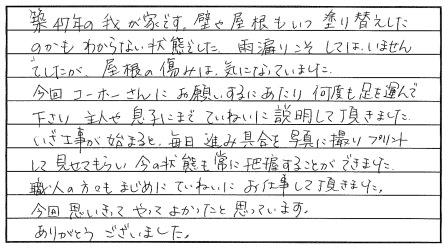 築47年の我が家です。壁や屋根もいつ塗り替えした
のかもわからない状態でした。雨漏りこそしてはいません
でしたが、屋根の傷みは、気になっていました。
今回コーホーさんにお願いするにあたり何度も足を運んで
下さい主人や息子にまでていねいに説明して頂きました。
いざ工事が始まると、毎日進み具合を写真に撮りプリント
して見せてもらい今の状態も常に把握することができました。
職人の方々もまじめにていねいにお仕事して頂きました。
今回思いきってやってよかったと思っています。
ありがとうございました。